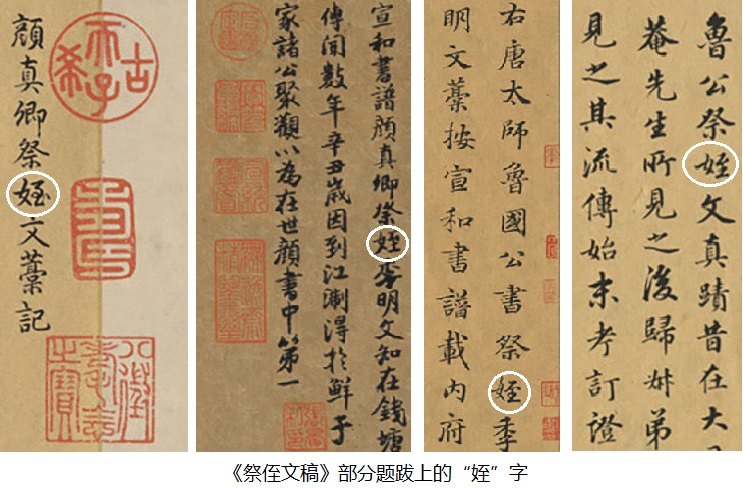 古希天子
八徵耄念之寶
顔真卿祭姪文藁記
宣和書譜顔真卿祭姪季明文知在錢塘
傳聞數年辛丑歳因到江淛淂於鮮于
家諸公聚觀以為在世顔書中第一
右唐太師魯國公書祭姪季
明文藁按宣和書譜載内府
魯公祭姪文真蹟昔在大
菴先生所見之後歸弟
見之其流傳始末考訂證
《祭侄文稿》部分题跋上的“姪”字